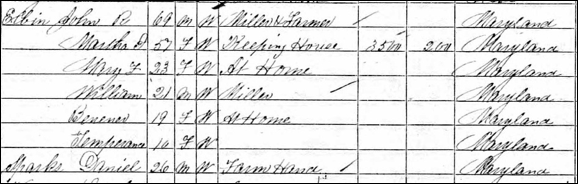 John R 69 M W Miller & Farmer Maryland
Martha 57 F W Keeping House 3500 200 Maryland
Mary F 23 F W At Home Maryland
William 21 M W Miller Maryland
19 F W At Home Maryland
Temperance 10 F W Maryland
Sparks Daniel 26 M W Farm Hand Maryland